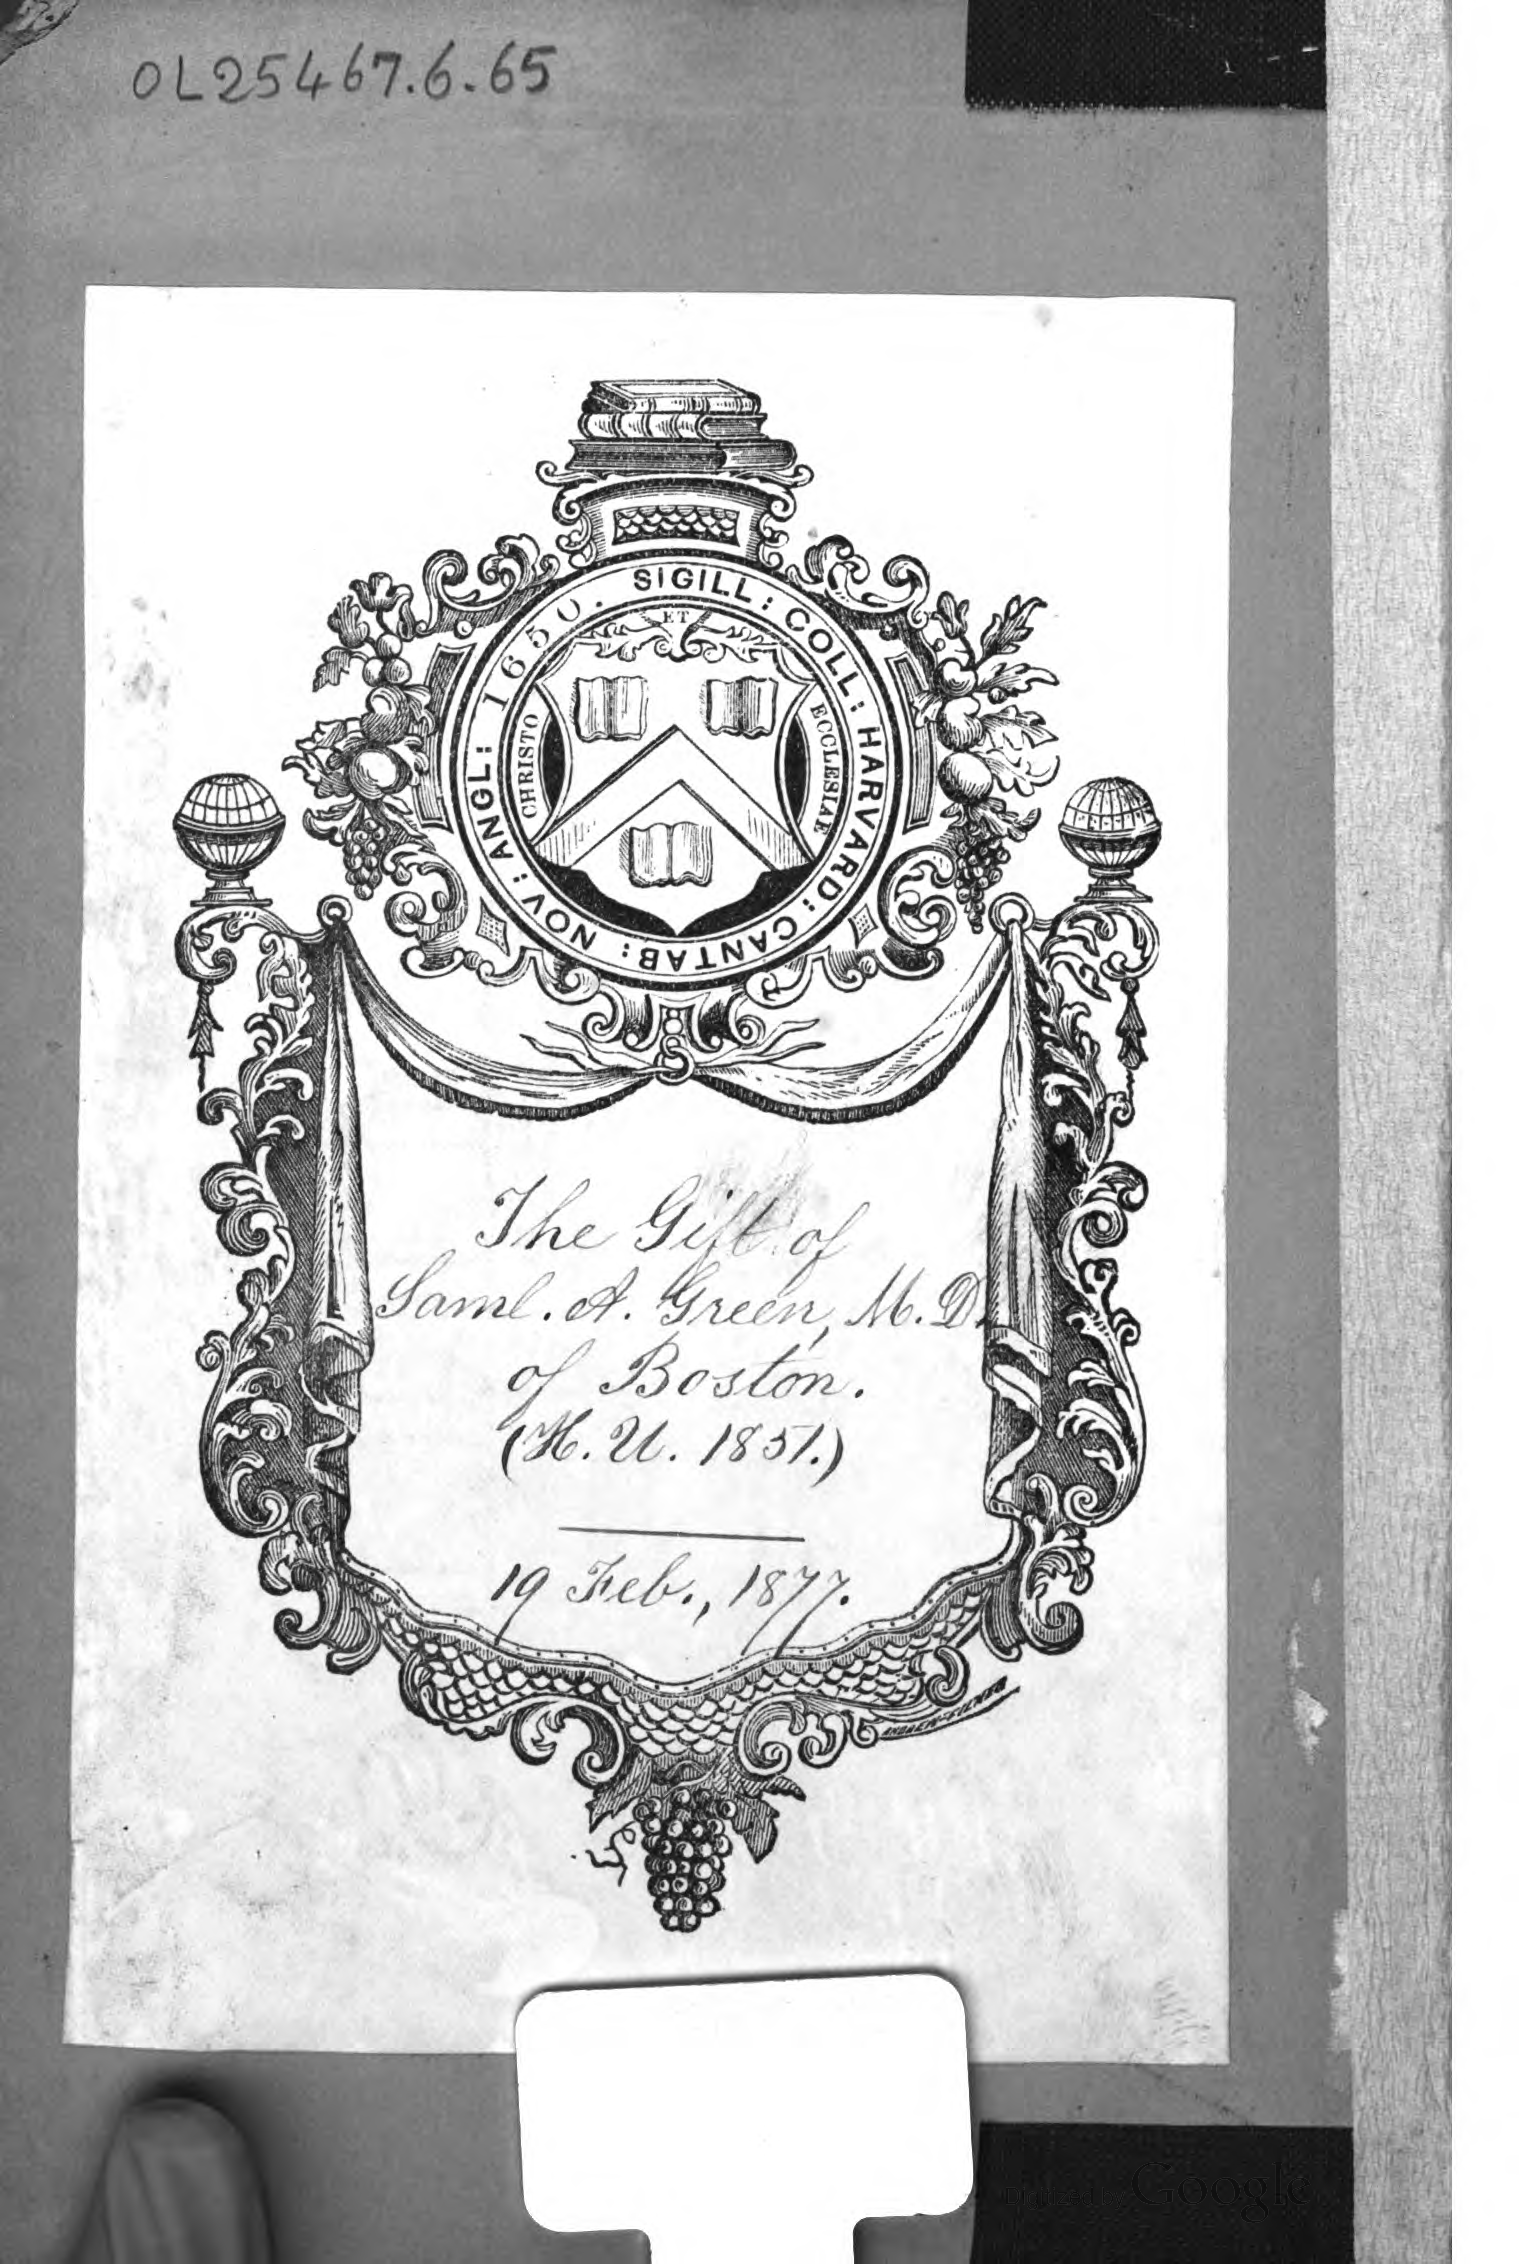 OL25467.6.65
SIGILL: COLL: HARVARD: CANTAB: NOV: ANGL: 1650.
CHRISTO ET ECCLESIAE
The Gift of
Saml. A. Green, M.D.
of Boston.
(H. U. 1851.)
19 Feb., 1877.
Digitized by Google